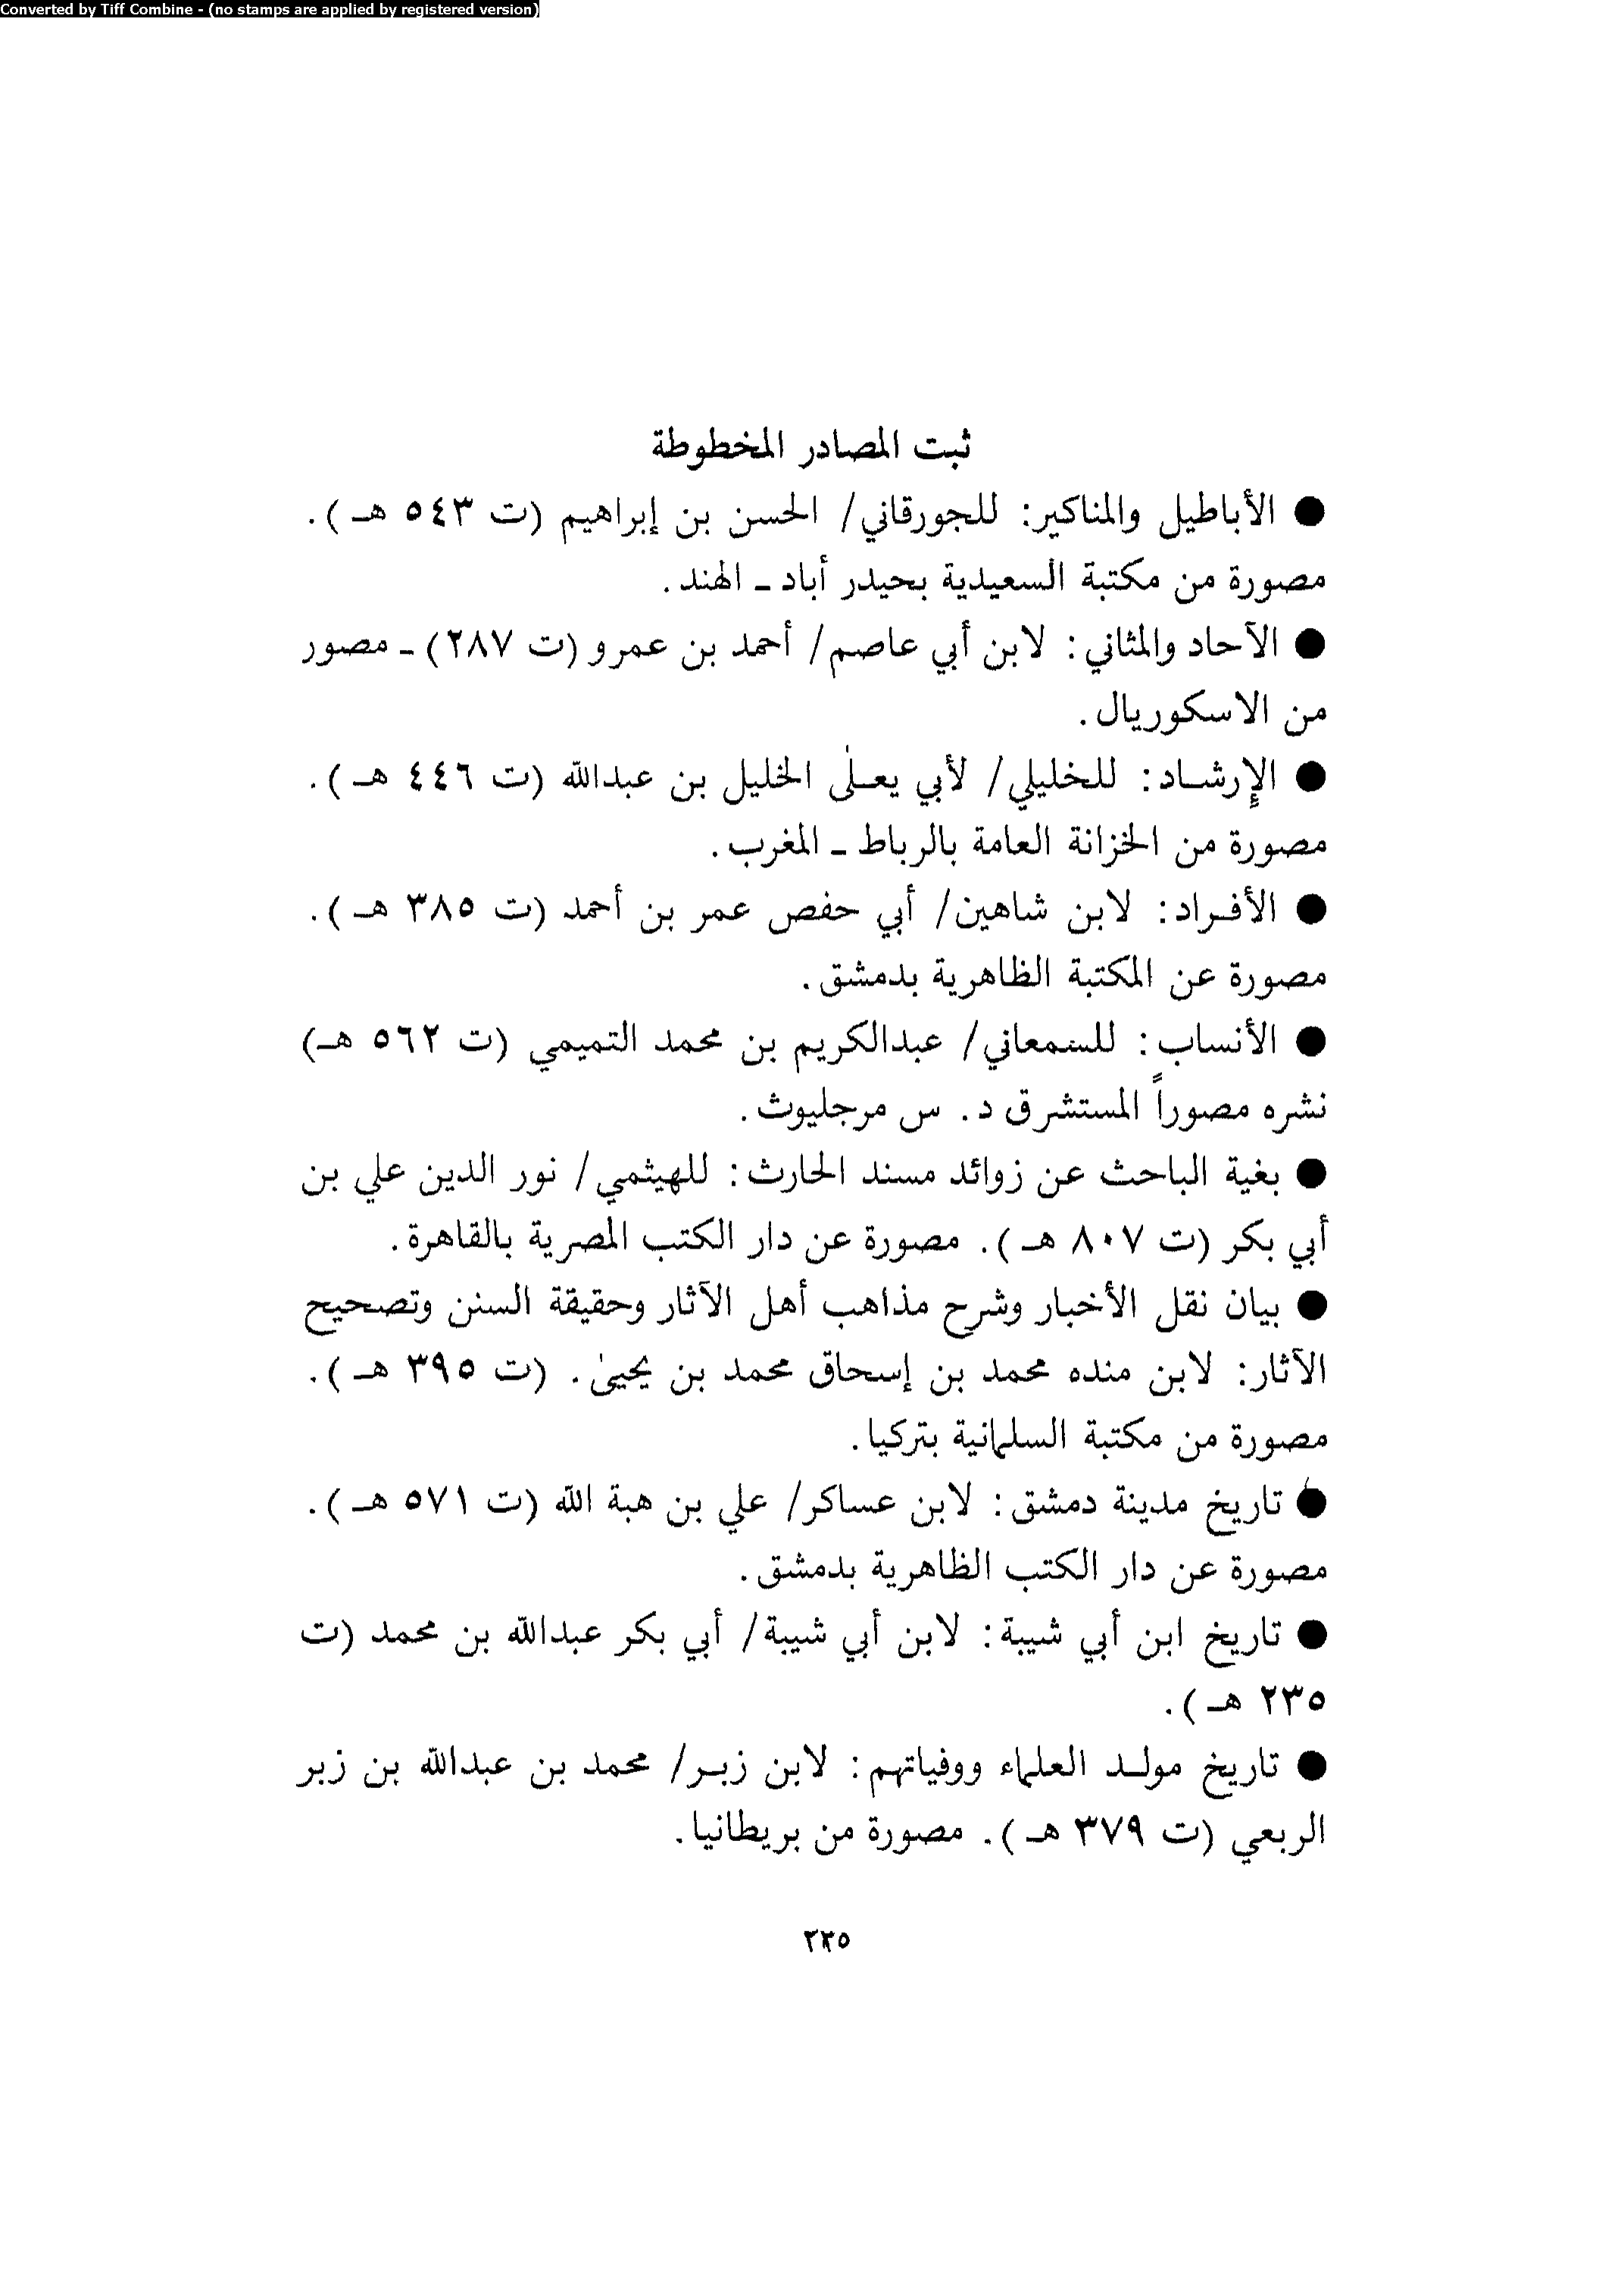 Converted by Tiff Combine - (no stamps are applied by registered version)
ثبت المصادر المخطوطة
● الأباطيل والمناكير: للجورقاني/ الحسن بن إبراهيم (ت ٥٤٣ هـ).
مصورة من مكتبة السعيدية بحيدر أباد ـ الهند.
● الآحاد والمثاني: لابن أبي عاصم/ أحمد بن عمرو (ت ٢٨٧) ـ مصور
من الاسكوريال.
● الإرشاد: للخليلي/ لأبي يعلى الخليل بن عبدالله (ت ٤٤٦ هـ).
مصورة من الخزانة العامة بالرباط ـ المغرب.
● الأفراد: لابن شاهين/ أبي حفص عمر بن أحمد (ت ٣٨٥ هـ).
مصورة عن المكتبة الظاهرية بدمشق.
● الأنساب: للسمعاني/ عبدالكريم بن محمد التميمي (ت ٥٦٢ هـ)
نشره مصوراً المستشرق د. س مرجليوث.
● بغية الباحث عن زوائد مسند الحارث: للهيثمي/ نور الدين علي بن
أبي بكر (ت ٨٠٧ هـ). مصورة عن دار الكتب المصرية بالقاهرة.
● بيان نقل الأخبار وشرح مذاهب أهل الآثار وحقيقة السنن وتصحيح
الآثار: لابن منده محمد بن إسحاق محمد بن يحيىٰ. (ت ٣٩٥ هـ).
مصورة من مكتبة السلمانية بتركيا.
● تاريخ مدينة دمشق: لابن عساكر/ علي بن هبة الله (ت ٥٧١ هـ).
مصورة عن دار الكتب الظاهرية بدمشق.
● تاريخ ابن أبي شيبة: لابن أبي شيبة/ أبي بكر عبدالله بن محمد (ت
٢٣٥ هـ).
● تاريخ مولد العلماء ووفياتهم: لابن زبر/ محمد بن عبدالله بن زبر
الربعي (ت ٣٧٩ هـ). مصورة من بريطانيا.